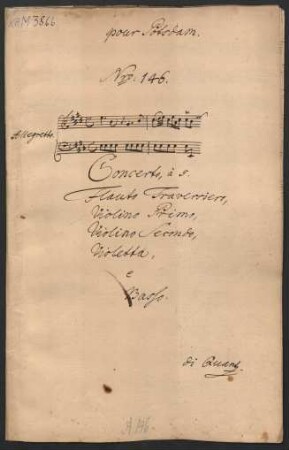 KHM 3866
pour Potsdam.
No. 146.
Allegretto
Concerto, à 5.
Flauto Traversiere,
Violino Primo,
Violino Secondo,
Violetta,
e
Basso.
di Quantz